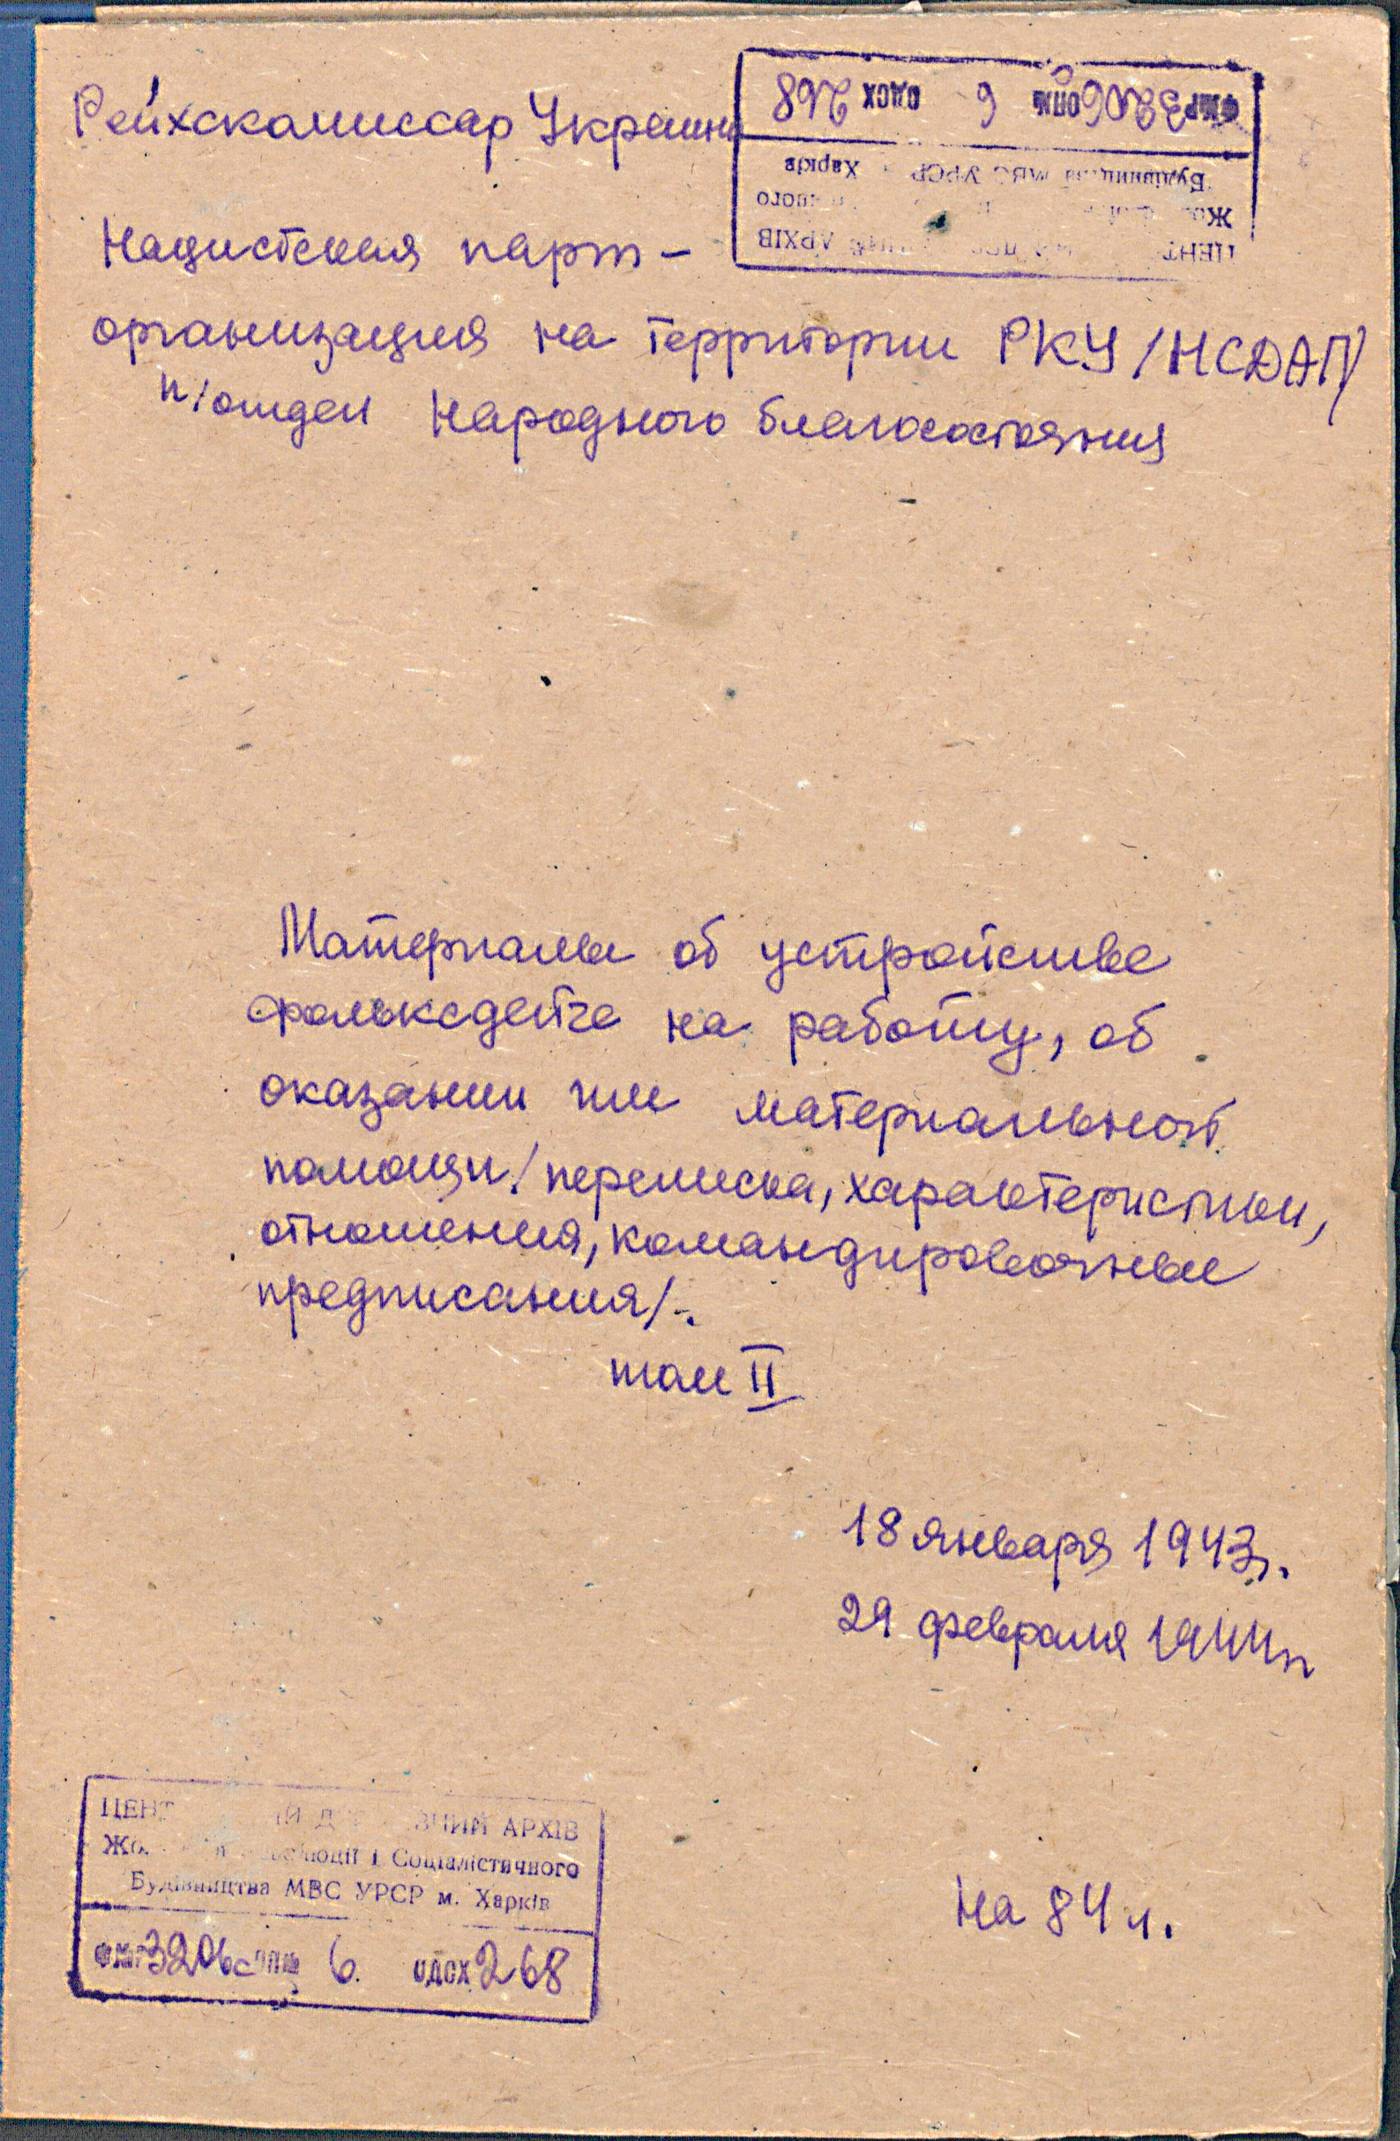 Рейхскомиссар Украины
Нацистская парт-
организация на территории РКУ /НСДАП/
п/отдел Народного благосостояния
ОДСХ 268
Харків
АРХІВ
Материалы об устройстве
фольксдейче на работу, об
оказании им материальной
помощи /переписка, характеристики,
отношения, командировочные
предписания/.
том II
18 января 1943г.
29 февраля 1944г
На 84 л.
АРХІВ
і Соціалістичного
Будівництва МВС УРСР м. Харків
3206с 6. ОДСХ 268